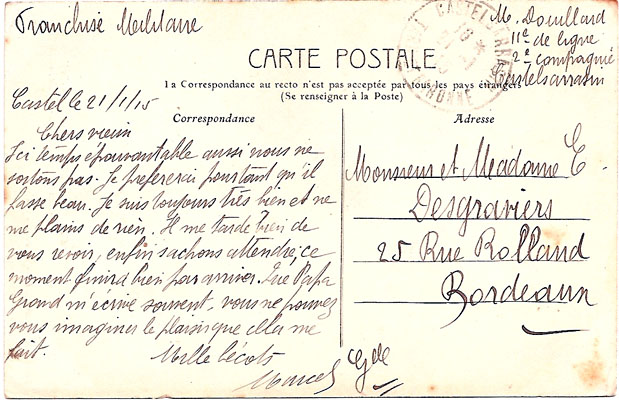 Franchise Militaire
M. Douillard
11e de ligne
2e compagnie
Castelsarrasin
CARTE POSTALE
La Correspondance au recto n'est pas acceptée par tous les pays étrangers
(Se renseigner à la Poste)
Correspondance
Adresse
Castel le 21/1/15
Chers vieux
Ici temps épouvantable aussi nous ne
sortons pas. Je prefererai pourtant qu'il
fasse beau. Je suis toujours très bien et ne
me plains de rien. Il me tarde bien de
vous revoir, enfin sachons attendre, ce
moment finira bien par arriver. Que Papa
Grand m'écrive souvent, vous ne pouvez
vous imaginer le plaisir que cela me
fait.
Mille bécots
Marcel
Monsieur et Madame E.
Desgraviers
25 Rue Rolland
Bordeaux
Gde